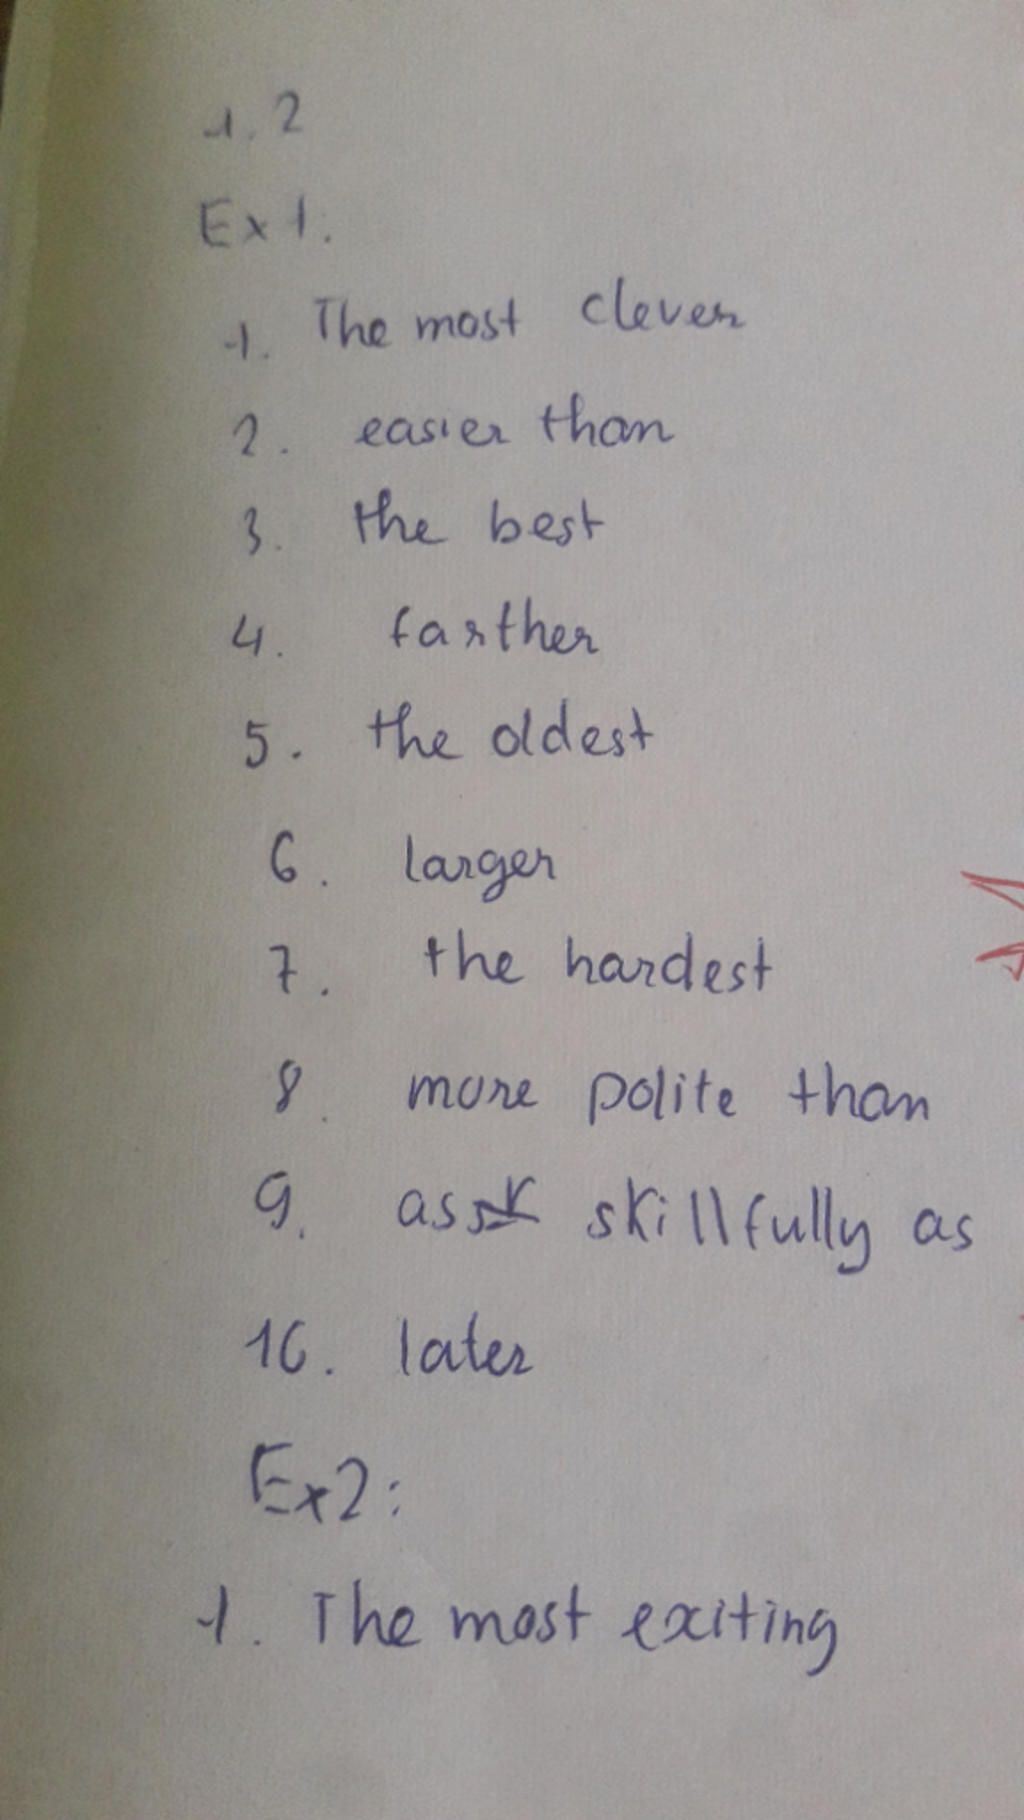 1.2
Ex 1.
1. The most clever
2. easier than
3. the best
4. farther
5. the oldest
6. larger
7. the hardest
8. more polite than
9. as skillfully as
10. later
Ex2:
1. The most exiting